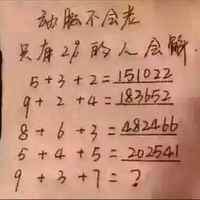 动脑不会老
只有2%的人会解.
5+3+2=151022
9+2+4=183652
8+6+3=482466
5+4+5=202541
9+3+7=?